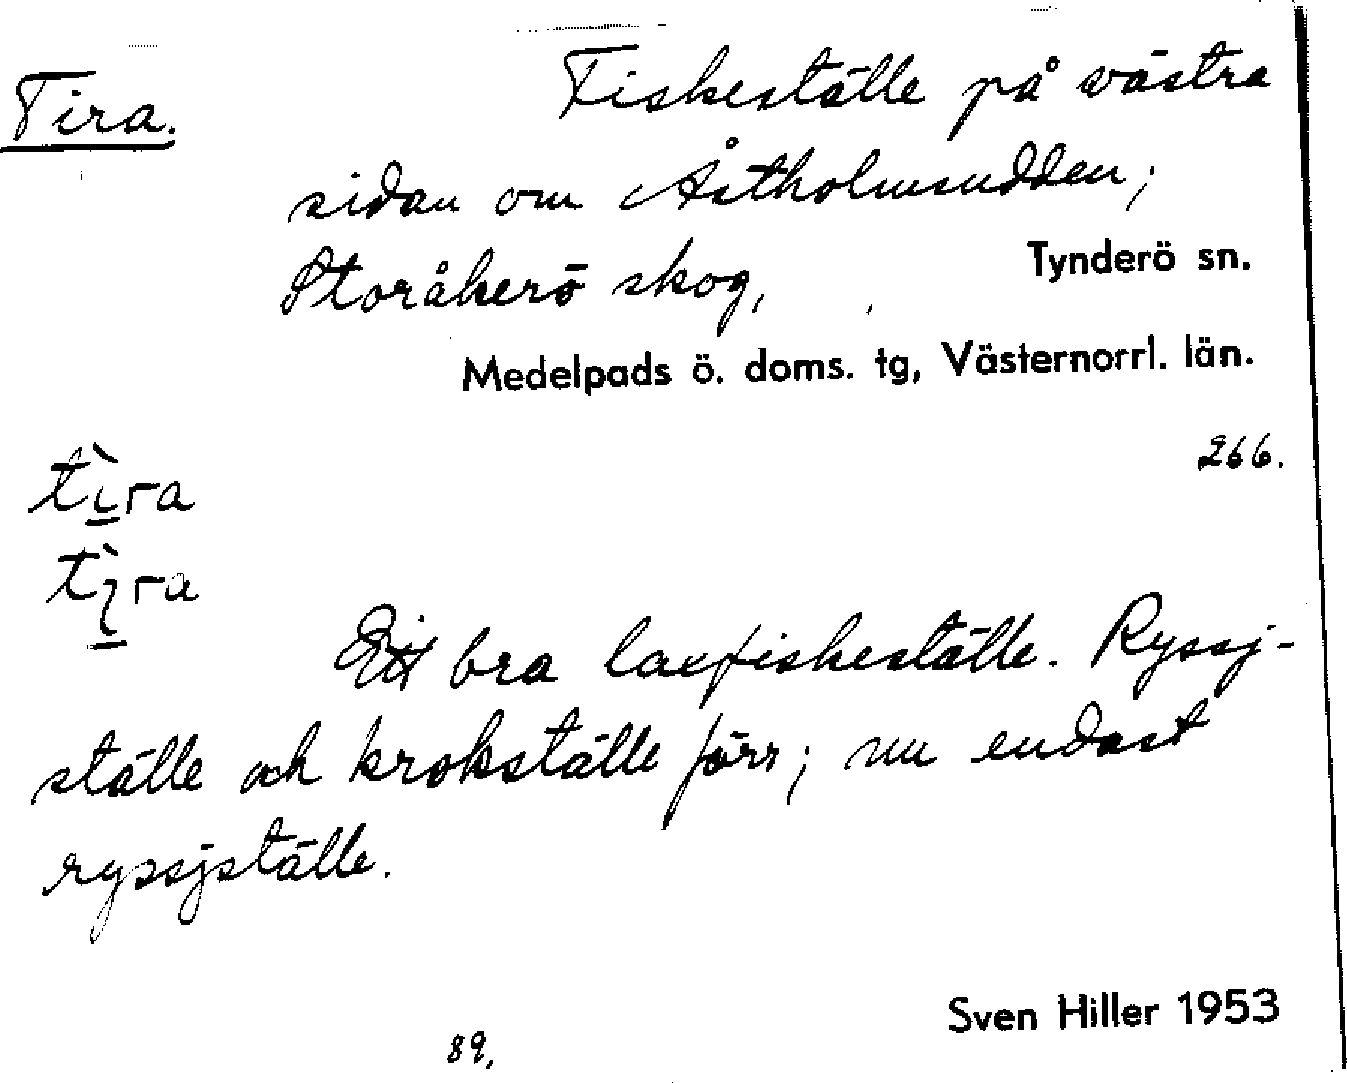 Tira.
Fiskeställe på västra
sidan om Åstholmsudden;
Storåkerö skog,
Tynderö sn.
Medelpads ö. doms. tg, Västernorrl. län.
266.
tìra
tìra
Ett bra laxfiskeställe. Ryssj-
ställe och krokställe förr; nu endast
ryssjställe.
Sven Hiller 1953
89.